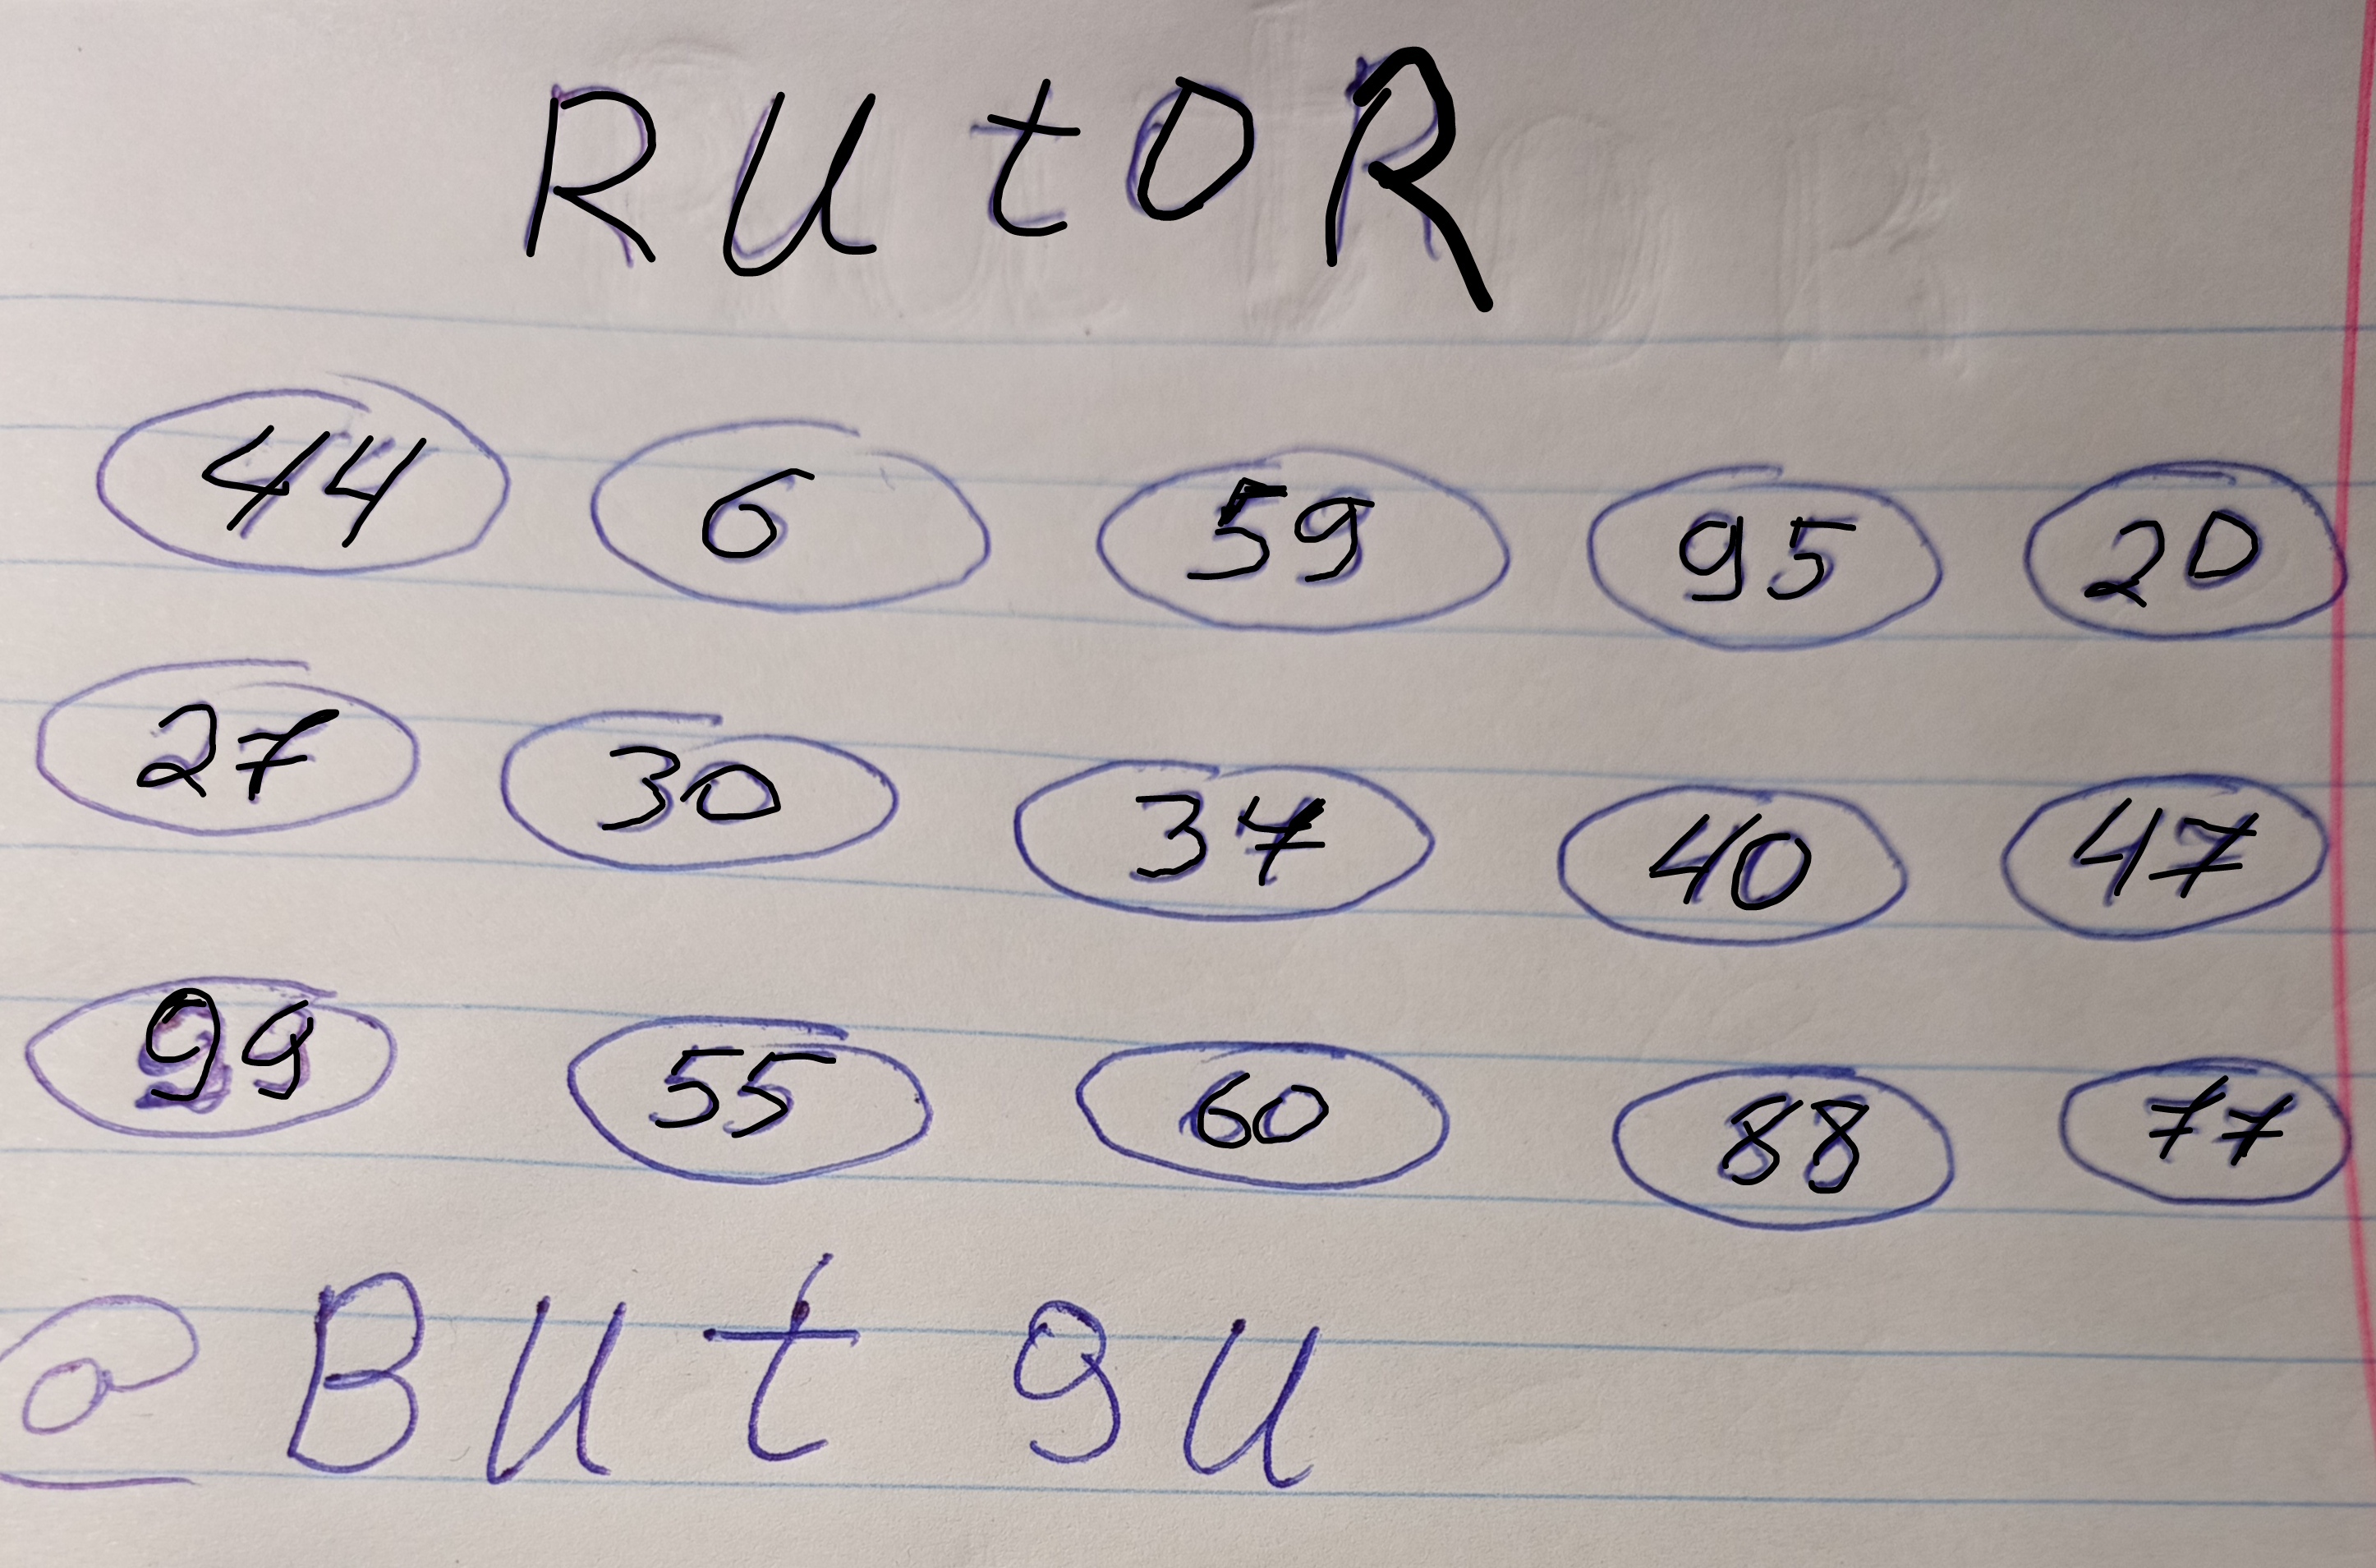 RUtOR
44 6 59 95 20
27 30 37 40 47
99 55 60 88 77
@BUt9U